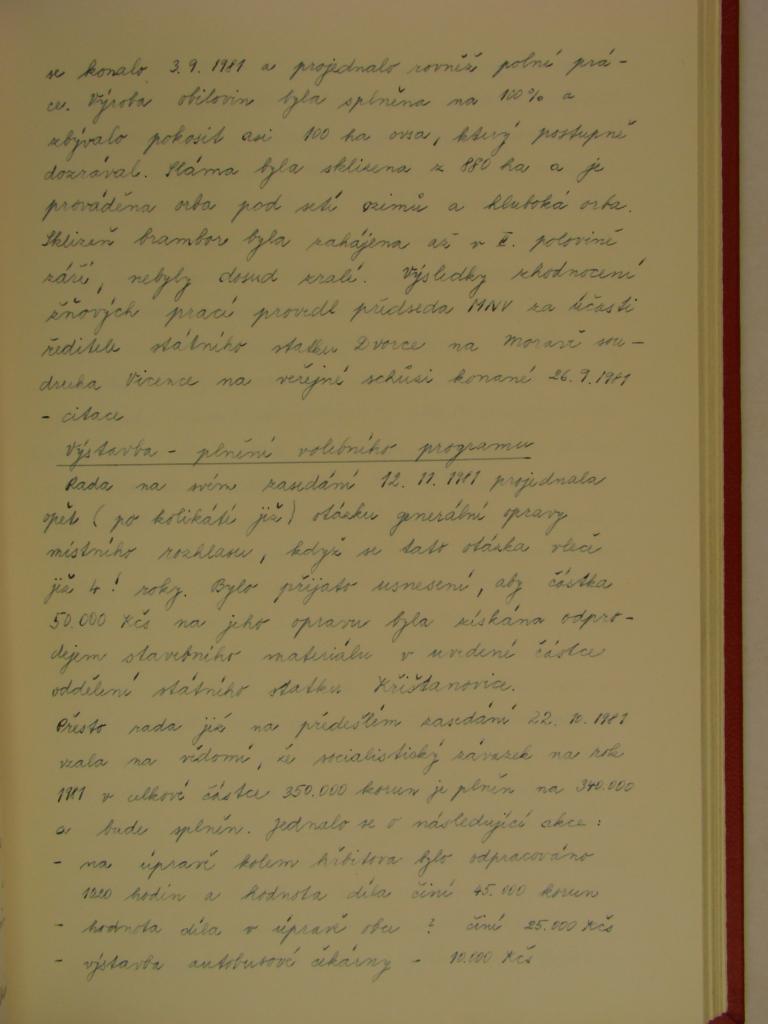 se konalo 3.9.1981 a projednalo rovněž polní prá-
ce. Výroba obilovin byla splněna na 100% a
zbývalo pokosit asi 100 ha ovsa, který postupně
dozrával. Sláma byla sklizena z 880 ha a je
prováděna orba pod setí ozimů a hluboká orba.
Sklizeň brambor byla zahájena až v II. polovině
září, nebyly dosud zralé. Výsledky zhodnocení
žňových prací provedl předseda MNV za účasti
ředitele státního statku Dvorce na Moravě sou-
druha Vicence na veřejné schůzi konané 26.9.1981
- citace
Výstavba - plnění volebního programu
Rada na svém zasedání 12.11.1981 projednala
opět (po kolikáté již) otázku generální opravy
místního rozhlasu, když se tato otázka vleče
již 4! roky. Bylo přijato usnesení, aby částka
50.000 Kčs na jeho opravu byla získána odpro-
dejem stavebního materiálu v uvedené částce
oddělení státního statku Křišťanovice.
Přesto rada již na předešlém zasedání 22.10.1981
vzala na vědomí, že socialistický závazek na rok
1981 v celkové částce 350.000 korun je plněn na 340.000
a bude splněn. Jednalo se o následující akce:
- na úpravě kolem hřbitova bylo odpracováno
1220 hodin a hodnota díla činí 45.000 korun
- hodnota díla v úpravě obce ? činí 25.000 Kčs
- výstavba autobusové čekárny - 10.000 Kčs